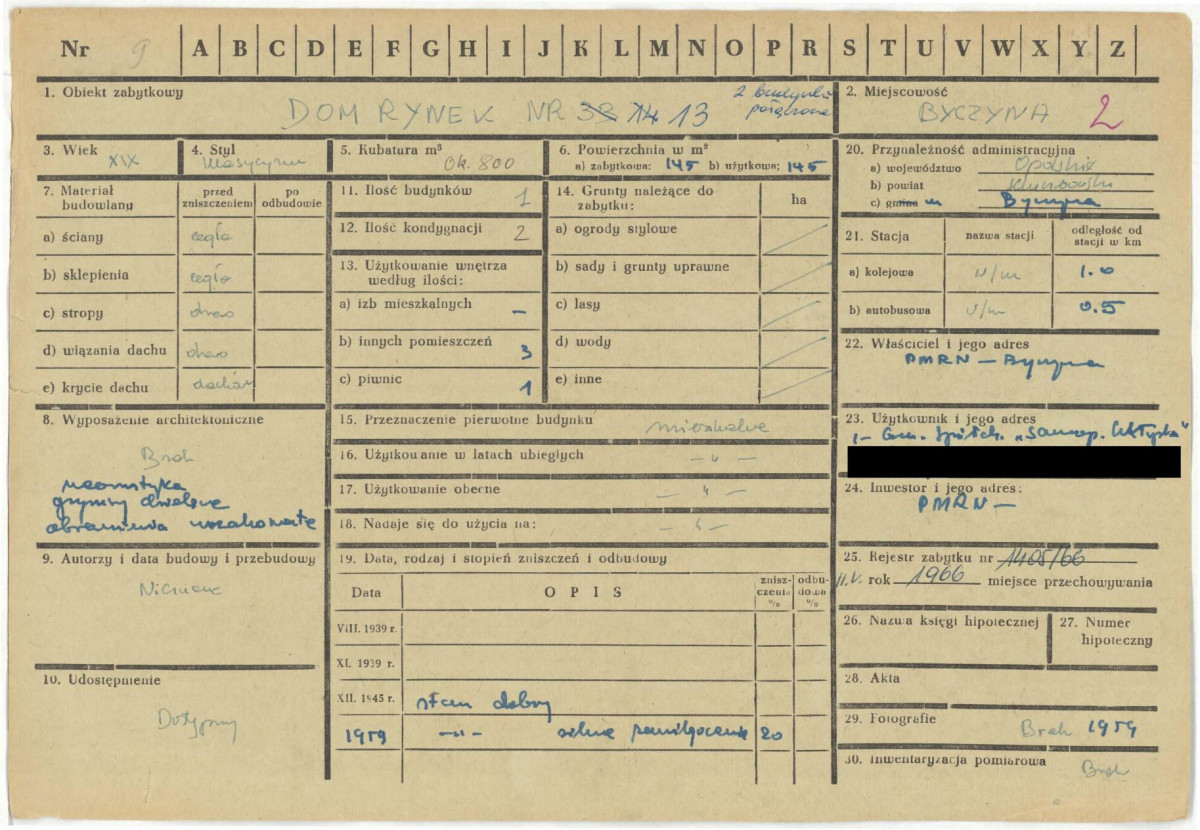 Nr 9 A B C D E F G H I J K L M N O P R S T U V W X Y Z
1. Obiekt zabytkowy
DOM RYNEK NR 38 14 13
2 budynki
połączone
2. Miejscowość
BYCZYNA 2
3. Wiek
XIX
4. Styl
klasycyzm
5. Kubatura m³
Ok. 800
6. Powierzchnia w m²
a) zabytkowa: 145 b) użytkowa: 145
7. Materiał budowlany
przed zniszczeniem
po odbudowie
a) ściany cegła
b) sklepienia cegła
c) stropy drewo
d) wiązania dachu drewo
e) krycie dachu
8. Wyposażenie architektoniczne
Brak
obramienia uszakowate
9. Autorzy i data budowy i przebudowy
Nieznane
10. Udostępnienie
Dostępny
11. Ilość budynków 1
12. Ilość kondygnacji 2
13. Użytkowanie wnętrza według ilości:
a) izb mieszkalnych –
b) innych pomieszczeń 3
c) piwnic 1
14. Grunty należące do zabytku:
ha
a) ogrody stylowe
b) sady i grunty uprawne
c) lasy
d) wody
e) inne
15. Przeznaczenie pierwotne budynku mieszkalne
16. Użytkowanie w latach ubiegłych – „ –
17. Użytkowanie obecne – „ –
18. Nadaje się do użycia na: – „ –
19. Data, rodzaj i stopień zniszczeń i odbudowy
Data
OPIS
zniszczenia %
odbudowa %
VIII. 1939 r.
XI. 1939 r.
XII. 1945 r. stan dobry
1959 –„– silne zawilgocenie 20
20. Przynależność administracyjna
a) województwo Opolskie
b) powiat Kluczborski
c) gmina m Byczyna
21. Stacja
nazwa stacji
odległość od stacji w km
a) kolejowa n/m 1.0
b) autobusowa n/m 0.5
22. Właściciel i jego adres
PMRN – Byczyna
23. Użytkownik i jego adres
1– Gm. Spółdz. „Samop. Chłopska"
24. Inwestor i jego adres:
PMRN –
25. Rejestr zabytku nr 1405/66
11.V. rok 1966 miejsce przechowywania
26. Nazwa księgi hipotecznej
27. Numer hipoteczny
28. Akta
29. Fotografie
Brak 1959
30. Inwentaryzacja pomiarowa
Brak